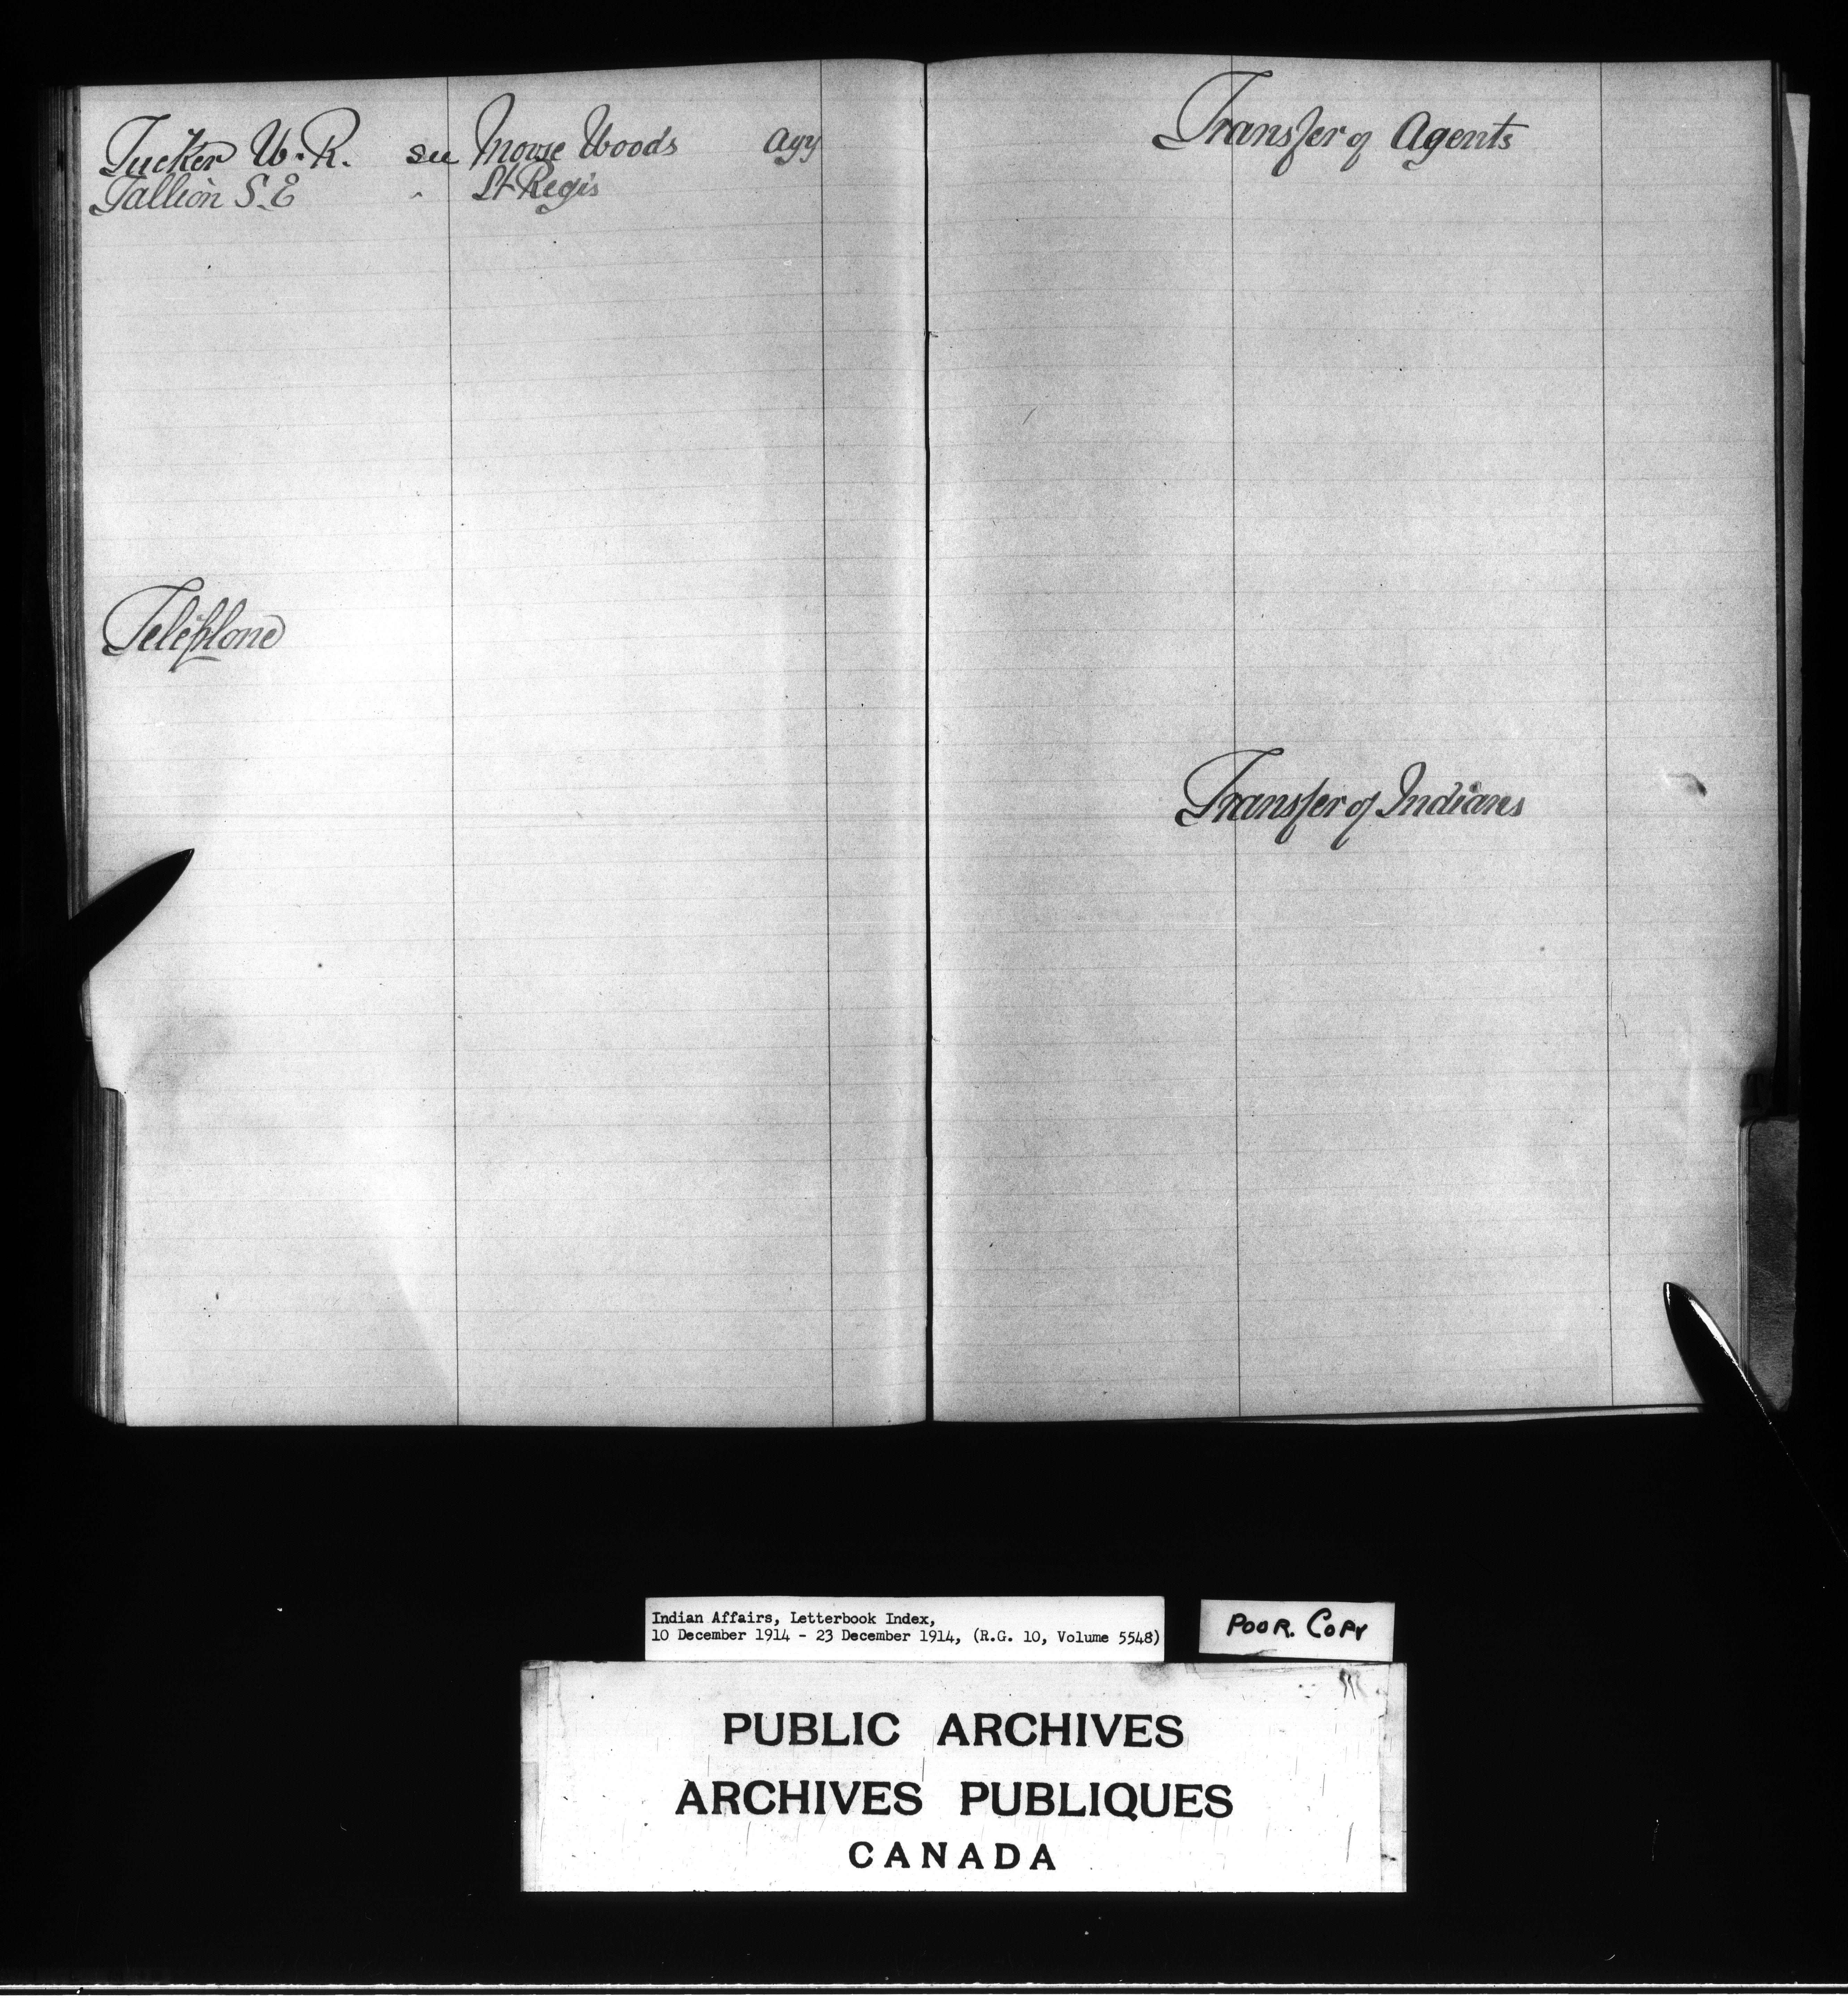 Tucker W. R. see Mouse Woods Agy
Tallion S. E " St Regis
Telephone
Transfer of Agents
Transfer of Indians
T
Indian Affairs, Letterbook Index,
10 December 1914 - 23 December 1914, (R.G. 10, Volume 5548)
POOR. COPY
PUBLIC ARCHIVES
ARCHIVES PUBLIQUES
CANADA